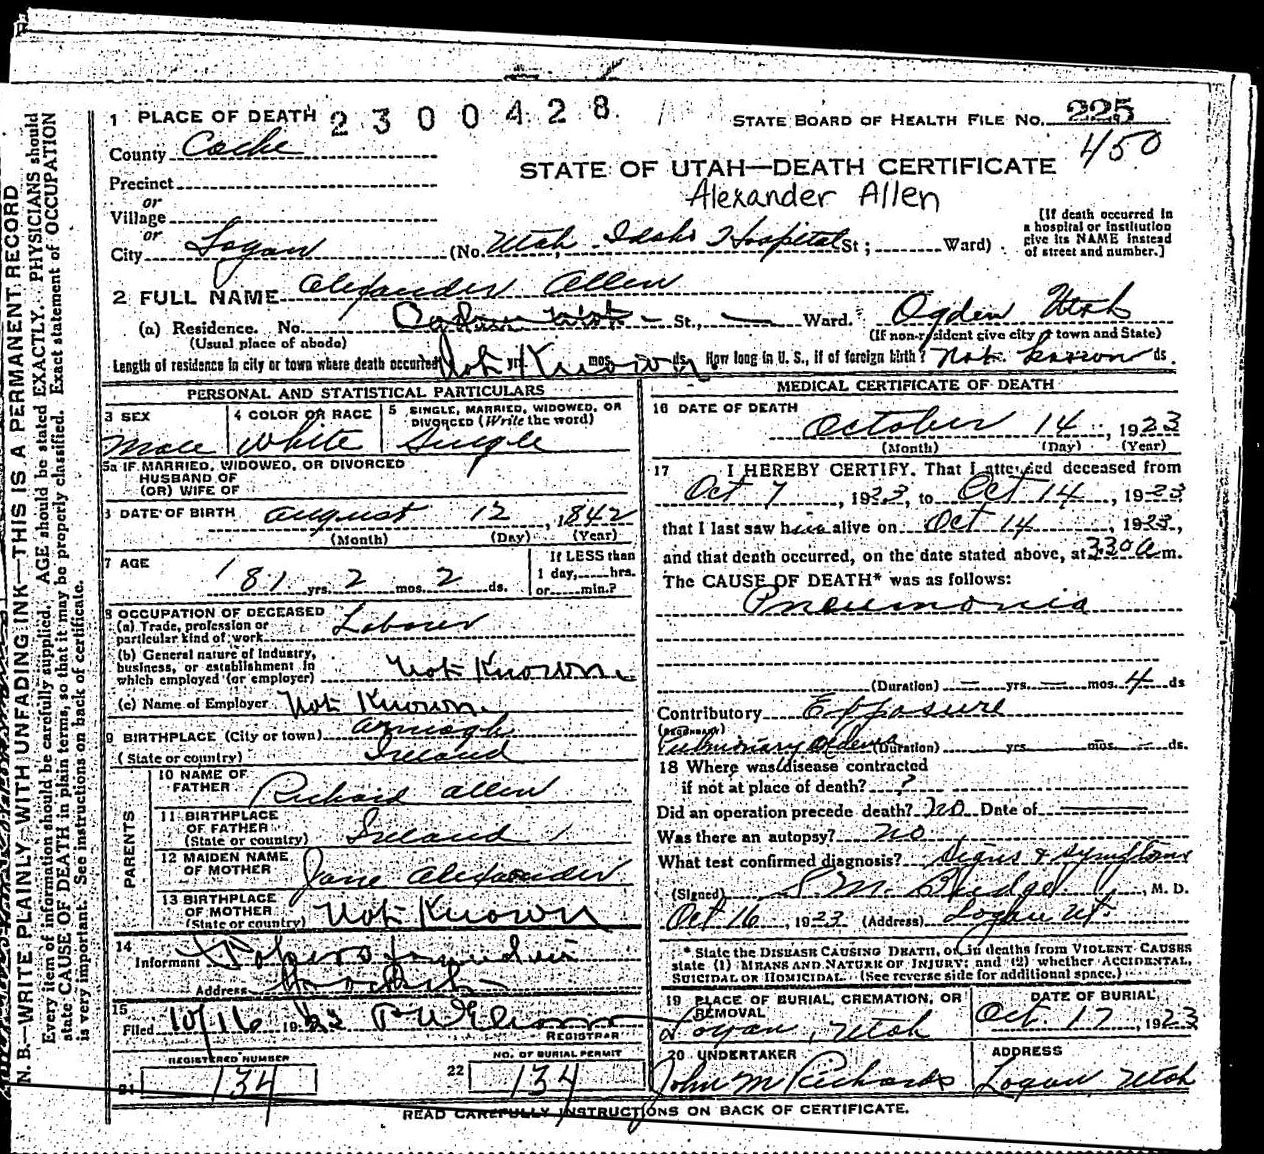 1 PLACE OF DEATH 2300428
STATE BOARD OF HEALTH FILE NO. 225
450
County Cache
STATE OF UTAH—DEATH CERTIFICATE
Precinct
Alexander Allen
or
Village
or
City Logan (No. Utah, Idaho Hospital St; Ward)
[If death occurred in
a hospital or institution
give its NAME instead
of street and number.]
2 FULL NAME Alexander Allen
(a) Residence. No. Ogden Utah St., Ward. Ogden Utah
(Usual place of abode) (If non-resident give city or town and State)
Length of residence in city or town where death occurred Not yrs. Known mos. ds. How long in U. S., if of foreign birth? Not known ds.
PERSONAL AND STATISTICAL PARTICULARS
3 SEX 4 COLOR OR RACE 5 SINGLE, MARRIED, WIDOWED, OR
DIVORCED (Write the word)
Male White Single
5a IF MARRIED, WIDOWED, OR DIVORCED
HUSBAND OF
(OR) WIFE OF
DATE OF BIRTH August 12, 1842
(Month) (Day) (Year)
7 AGE 81 yrs. 2 mos. 2 ds.
If LESS than
1 day, hrs.
or min.?
8 OCCUPATION OF DECEASED
(a) Trade, profession or
particular kind of work Laborer
(b) General nature of industry,
business, or establishment in
which employed (or employer) Not Known
(c) Name of Employer Not Known
9 BIRTHPLACE (City or town) Armagh
(State or country) Ireland
PARENTS
10 NAME OF
FATHER Richard Allen
11 BIRTHPLACE
OF FATHER
(State or country) Ireland
12 MAIDEN NAME
OF MOTHER Jane Alexander
13 BIRTHPLACE
OF MOTHER
(State or country) Not Known
14
Informant
Address
15
Filed 10/16 1923
REGISTRAR
REGISTERED NUMBER
21 134
NO. OF BURIAL PERMIT
22 134
MEDICAL CERTIFICATE OF DEATH
16 DATE OF DEATH
October 14, 1923
(Month) (Day) (Year)
17 I HEREBY CERTIFY. That I attended deceased from
Oct 7, 1923, to Oct 14, 1923
that I last saw him alive on Oct 14, 1923,
and that death occurred, on the date stated above, at 330 A m.
The CAUSE OF DEATH* was as follows:
Pneumonia
(Duration) yrs. mos. 4 ds
Contributory Exposure
(Secondary)
Pulmonary Oedema (Duration) yrs mos. ds.
18 Where was disease contracted
if not at place of death? ?
Did an operation precede death? No Date of
Was there an autopsy? No
What test confirmed diagnosis? Signs & Symptoms
(Signed) S. M. Budge, M. D.
Oct 16, 1923 (Address) Logan Ut.
* State the DISEASE CAUSING DEATH, or in deaths from VIOLENT CAUSES
state (1) MEANS AND NATURE OF INJURY; and (2) whether ACCIDENTAL,
SUICIDAL OR HOMICIDAL. (See reverse side for additional space.)
19 PLACE OF BURIAL, CREMATION, OR
REMOVAL
Logan, Utah
DATE OF BURIAL
Oct. 17, 1923
20 UNDERTAKER
John M Richards
ADDRESS
Logan, Utah
READ CAREFULLY INSTRUCTIONS ON BACK OF CERTIFICATE.
N. B.—WRITE PLAINLY WITH UNFADING INK—THIS IS A PERMANENT RECORD
Every item of information should be carefully supplied. AGE should be stated EXACTLY. PHYSICIANS should
state CAUSE OF DEATH in plain terms, so that it may be properly classified. Exact statement of OCCUPATION
is very important. See instructions on back of certificate.